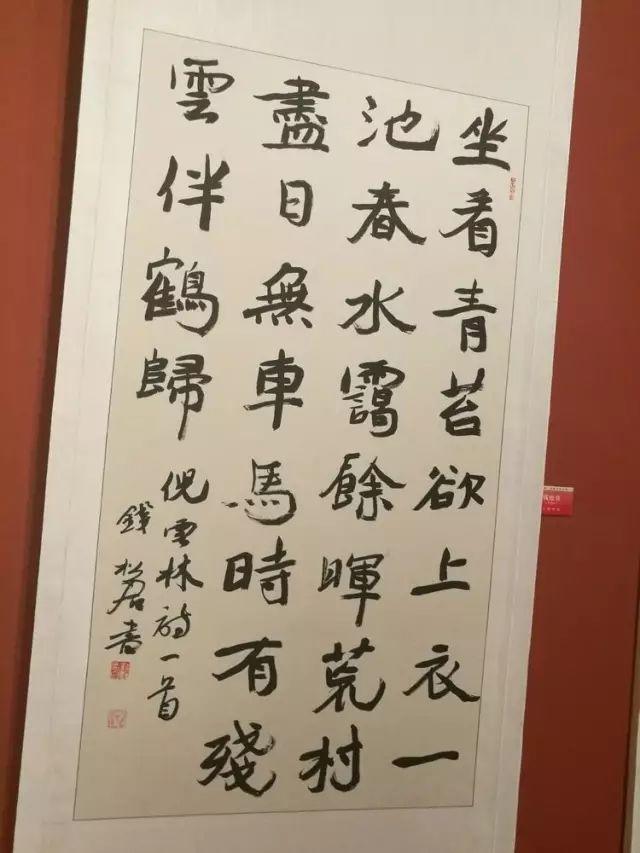 坐看青苔欲上衣一
池春水靄餘暉荒村
盡日無車馬時有殘
雲伴鶴歸
倪雲林詩一首
錢松君書